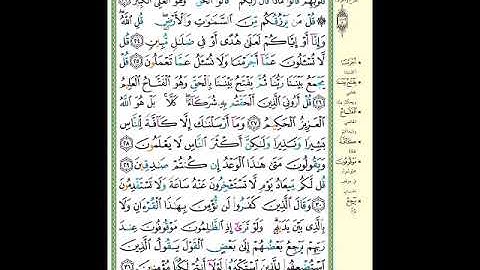 قُلُوبِهِمْ قَالُوا۟ مَاذَا قَالَ رَبُّكُمْ قَالُوا۟ ٱلْحَقَّ وَهُوَ ٱلْعَلِىُّ ٱلْكَبِيرُ ٢٣
۞ قُلْ مَن يَرْزُقُكُم مِّنَ ٱلسَّمَٰوَٰتِ وَٱلْأَرْضِ قُلِ ٱللَّهُ
وَإِنَّآ أَوْ إِيَّاكُمْ لَعَلَىٰ هُدًى أَوْ فِى ضَلَٰلٍ مُّبِينٍ ٢٤ قُل
لَّا تُسْـَٔلُونَ عَمَّآ أَجْرَمْنَا وَلَا نُسْـَٔلُ عَمَّا تَعْمَلُونَ ٢٥ قُلْ
يَجْمَعُ بَيْنَنَا رَبُّنَا ثُمَّ يَفْتَحُ بَيْنَنَا بِٱلْحَقِّ وَهُوَ ٱلْفَتَّاحُ ٱلْعَلِيمُ
٢٦ قُلْ أَرُونِىَ ٱلَّذِينَ أَلْحَقْتُم بِهِۦ شُرَكَآءَ كَلَّا بَلْ هُوَ ٱللَّهُ
ٱلْعَزِيزُ ٱلْحَكِيمُ ٢٧ وَمَآ أَرْسَلْنَٰكَ إِلَّا كَآفَّةً لِّلنَّاسِ
بَشِيرًا وَنَذِيرًا وَلَٰكِنَّ أَكْثَرَ ٱلنَّاسِ لَا يَعْلَمُونَ
٢٨ وَيَقُولُونَ مَتَىٰ هَٰذَا ٱلْوَعْدُ إِن كُنتُمْ صَٰدِقِينَ
٢٩ قُل لَّكُم مِّيعَادُ يَوْمٍ لَّا تَسْتَـْٔخِرُونَ عَنْهُ سَاعَةً وَلَا تَسْتَقْدِمُونَ
٣٠ وَقَالَ ٱلَّذِينَ كَفَرُوا۟ لَن نُّؤْمِنَ بِهَٰذَا ٱلْقُرْءَانِ وَلَا
بِٱلَّذِى بَيْنَ يَدَيْهِ وَلَوْ تَرَىٰٓ إِذِ ٱلظَّٰلِمُونَ مَوْقُوفُونَ عِندَ
رَبِّهِمْ يَرْجِعُ بَعْضُهُمْ إِلَىٰ بَعْضٍ ٱلْقَوْلَ يَقُولُ ٱلَّذِينَ
ٱسْتُضْعِفُوا۟ لِلَّذِينَ ٱسْتَكْبَرُوا۟ لَوْلَآ أَنتُمْ لَكُنَّا مُؤْمِنِينَ ٣١